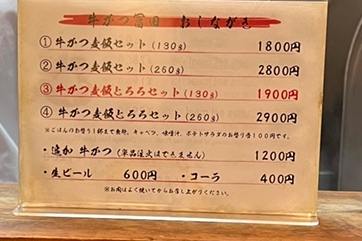 牛かつ冨田 おしながき
① 牛かつ麦飯セット(130g) 1800円
② 牛かつ麦飯セット(260g) 2800円
③ 牛かつ麦飯とろろセット(130g) 1900円
④ 牛かつ麦飯とろろセット(260g) 2900円
※ごはんのお替り1杯まで無料。キャベツ、味噌汁、ポテトサラダのお替り各100円です。
・追加 牛かつ(単品注文はできません) 1200円
・生ビール 600円 ・コーラ 400円
※お肉はよく焼いてからお召し上がりください。